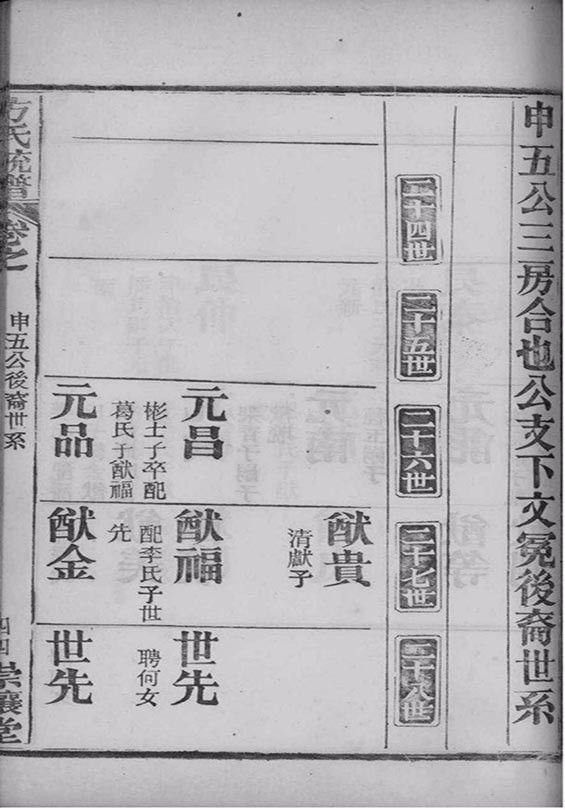 申五公三房合也公支下文冕後裔世系
二十四世
二十五世
二十六世
二十七世
二十八世
猷貴
清獻子
元昌
彬士子卒配
葛氏子猷福
猷福
配李氏子世
先
世先
聘何女
元品
猷金
世先
方氏統譜
卷之一
申五公後裔世系
四四
崇讓堂